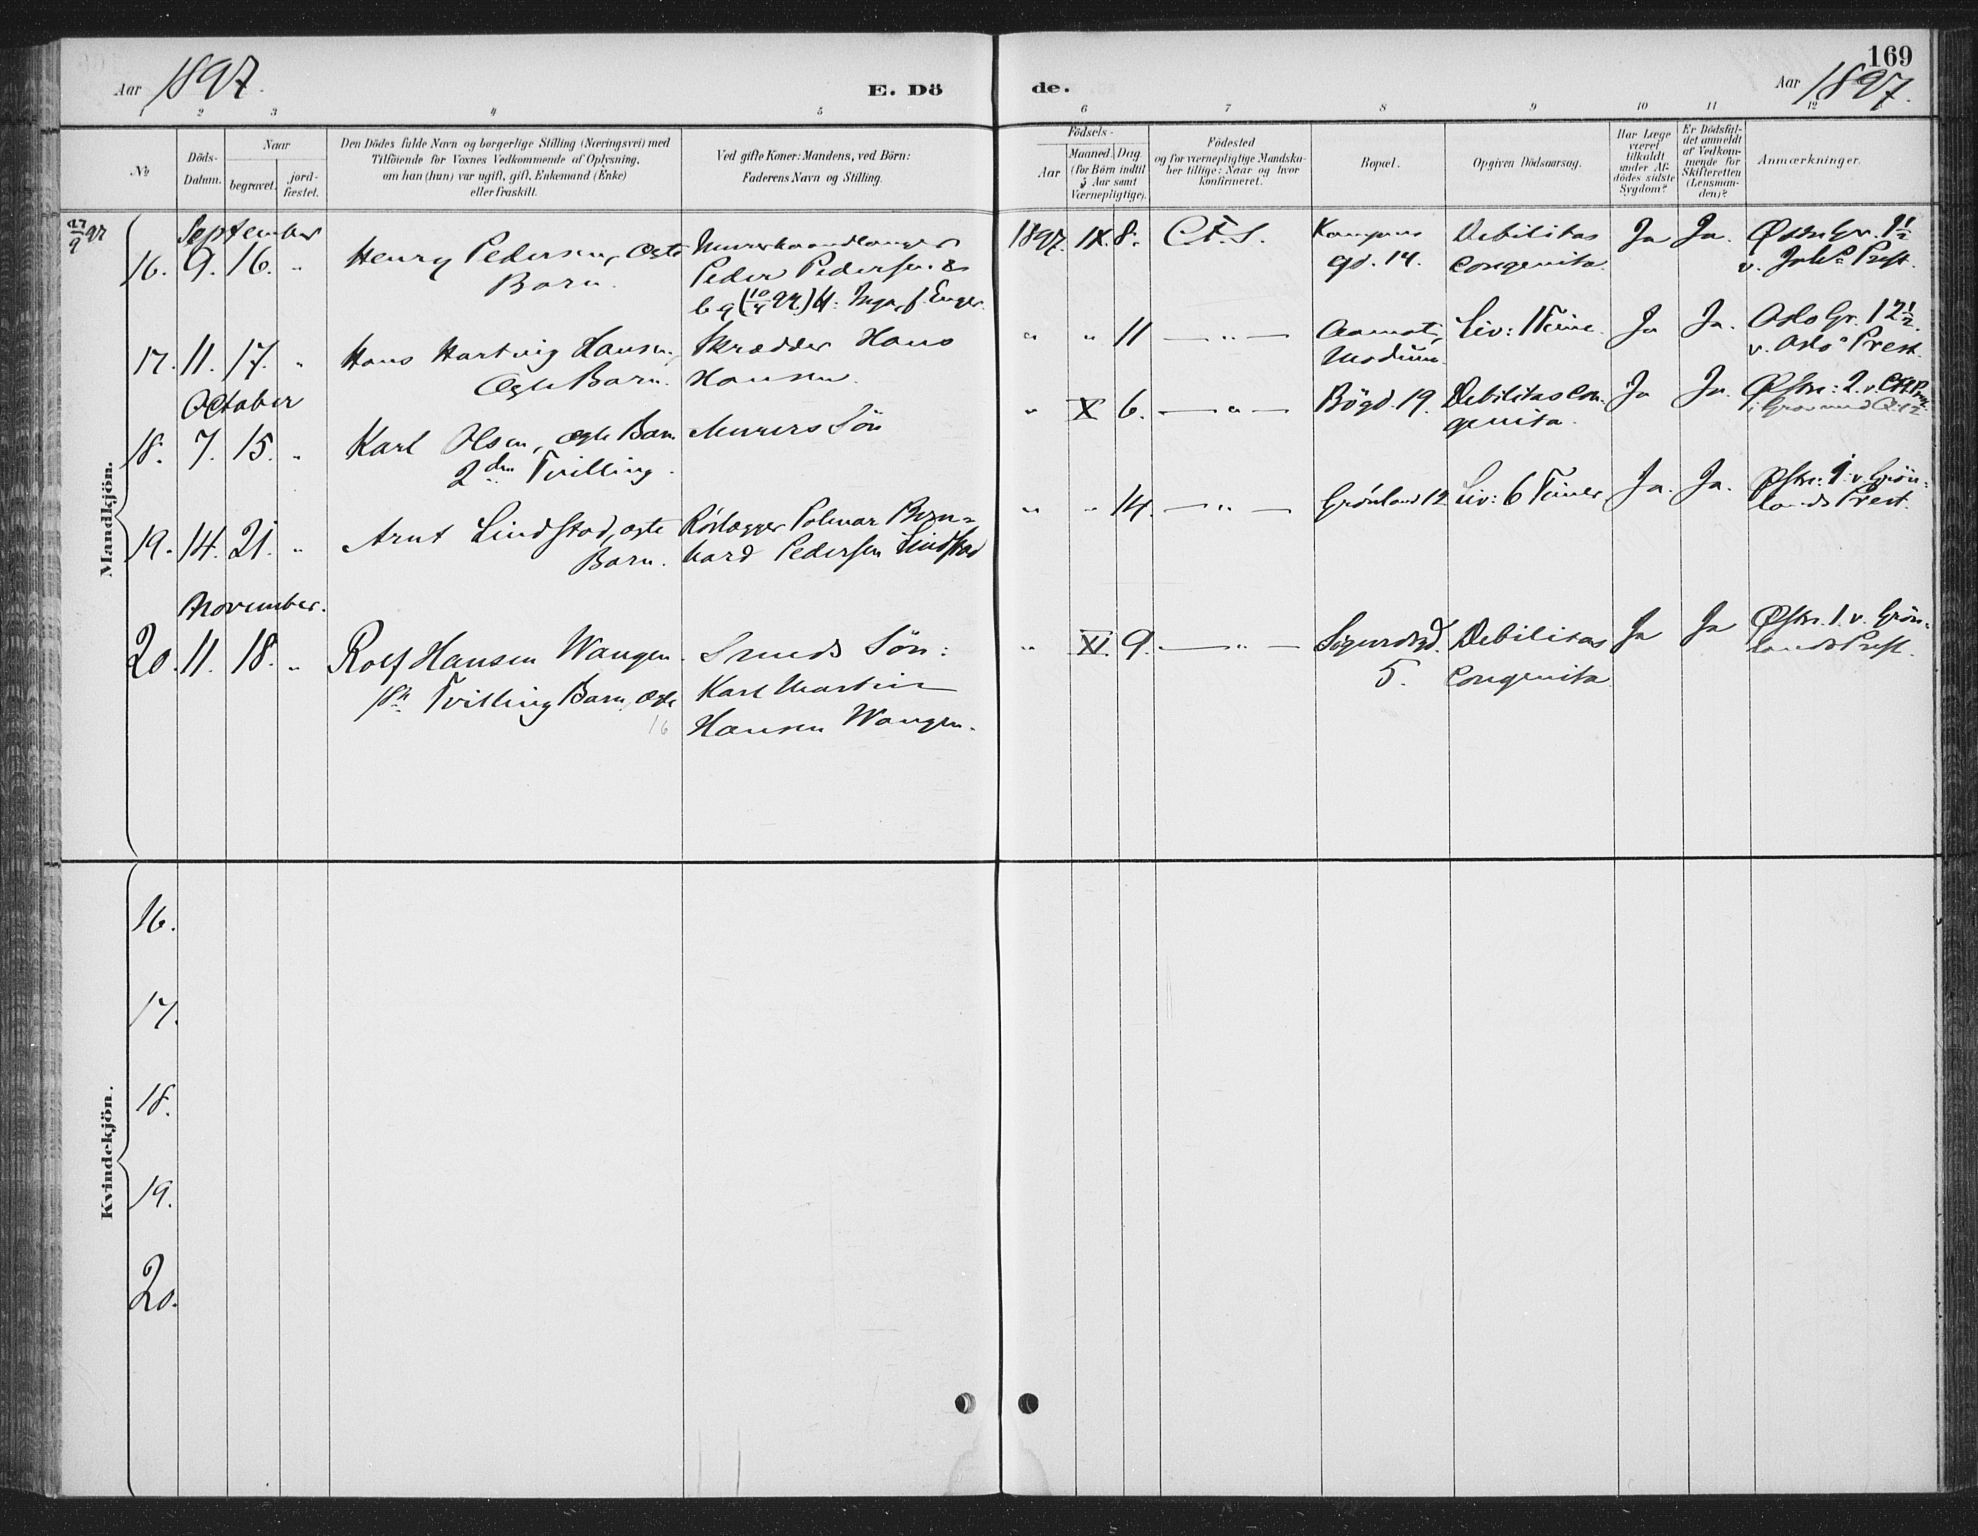 169
Aar 1897.
E. Dö
de.
Aar 1897.
1 2 3 4 5 6 7 8 9 10 11 12
No
Döds-
Datum.
Naar
begravet.
jord-
fæstet.
Den Dödes fulde Navn og borgerlige Stilling (Næringsvei) med
Tilföiende for Voxnes Vedkommende af Oplysning,
om han (hun) var ugift, gift, Enkemand (Enke)
eller fraskilt.
Ved gifte Koner: Mandens, ved Börn:
Faderens Navn og Stilling.
Födsels-
Aar
Maaned. Dag.
(for Börn indtil
5 Aar samt
Værnepligtige).
Födested
og for værnepligtige Mandska-
ber tillige: Naar og hvor
konfirmeret.
Bopæl.
Opgiven Dödsaarsag.
Har Læge
været
tilkaldt
under Af-
dödes sidste
Sygdom?
Er Dödsfal-
det anmeldt
af Vedkom-
mende for
Skifteretten
(Lensman-
den)?
Anmærkninger.
Mandkjön.
27/9 97
September
16. 9. 16. "
Henry Pedersen, ægte
Barn.
Peder Pedersen &
1897. IX. 8.
Kampens
gd. 14.
Debilitas
congenita.
Ja Ja.
17. 11. 17. "
Hans Hartvig Hansen,
Ægte Barn.
Skrædder Hans
Hansen.
" " 11 — " —
Aamot,
Modum.
Liv: 1 Time.
Ja Ja.
Oslo Gr. 12 1/2.
v. Oslo Prest.
October
18. 7. 15. "
Karl Olsen, ægte Barn
2den Tvilling.
Murers Sön
" X 6. — " —
Bögd. 19.
Debilitas con-
genita.
Ja Ja.
19. 14. 21. "
Arnt Lindstad, ægte
Barn.
Rörlægger
hard Pedersen Lindstad
" " 14. — " —
Grönland 12
Liv: 6 Timer
Ja. Ja.
Østre: 1 v. Grön-
lands Prest.
November.
20. 11. 18. "
Rolf Hansen Wangen.
1ste Tvilling Barn, ægte
16
Smeds Sön:
Karl Martin
Hansen Wangen.
" XI. 9. — " —
Sigurdsgd.
5.
Debilitas
Congenita.
Ja Ja
Østre. 1. v. Grön-
lands Prest.
Kvindekjön.
16.
17.
18.
19.
20.